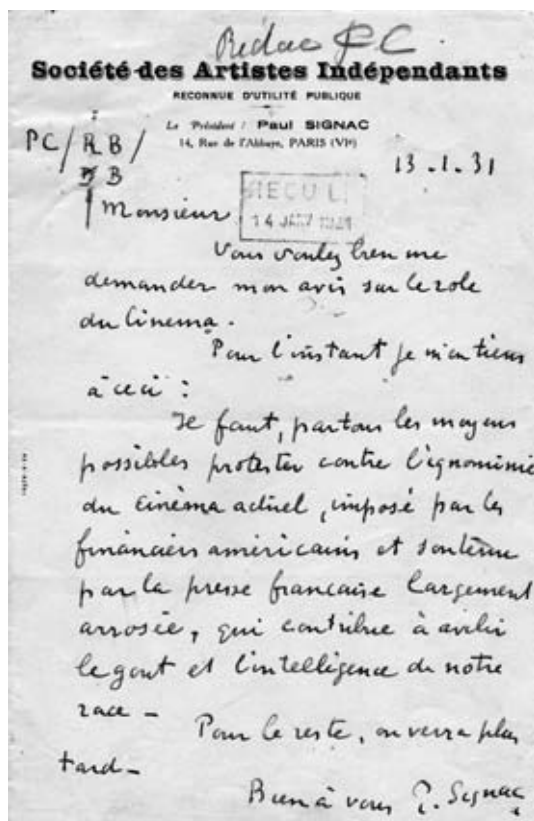 Rédac PC
Société des Artistes Indépendants
RECONNUE D'UTILITÉ PUBLIQUE
Le Président : Paul SIGNAC
14, Rue de l'Abbaye, PARIS (VIe)
PC/RB/
B
13.1.31
REÇU LE
14 JANV 1931
Monsieur
Vous voulez bien me
demander mon avis sur le role
du Cinema.
Pour l'instant je m'en tiens
à ceci :
Il faut, par tous les moyens
possibles protester contre l'ignominie
du cinéma actuel, imposé par les
financiers américains et soutenu
par la presse française largement
arrosée, qui contribue à avilir
le gout et l'intelligence de notre
race –
Pour le reste, on verra plus
tard –
Bien à vous P. Signac